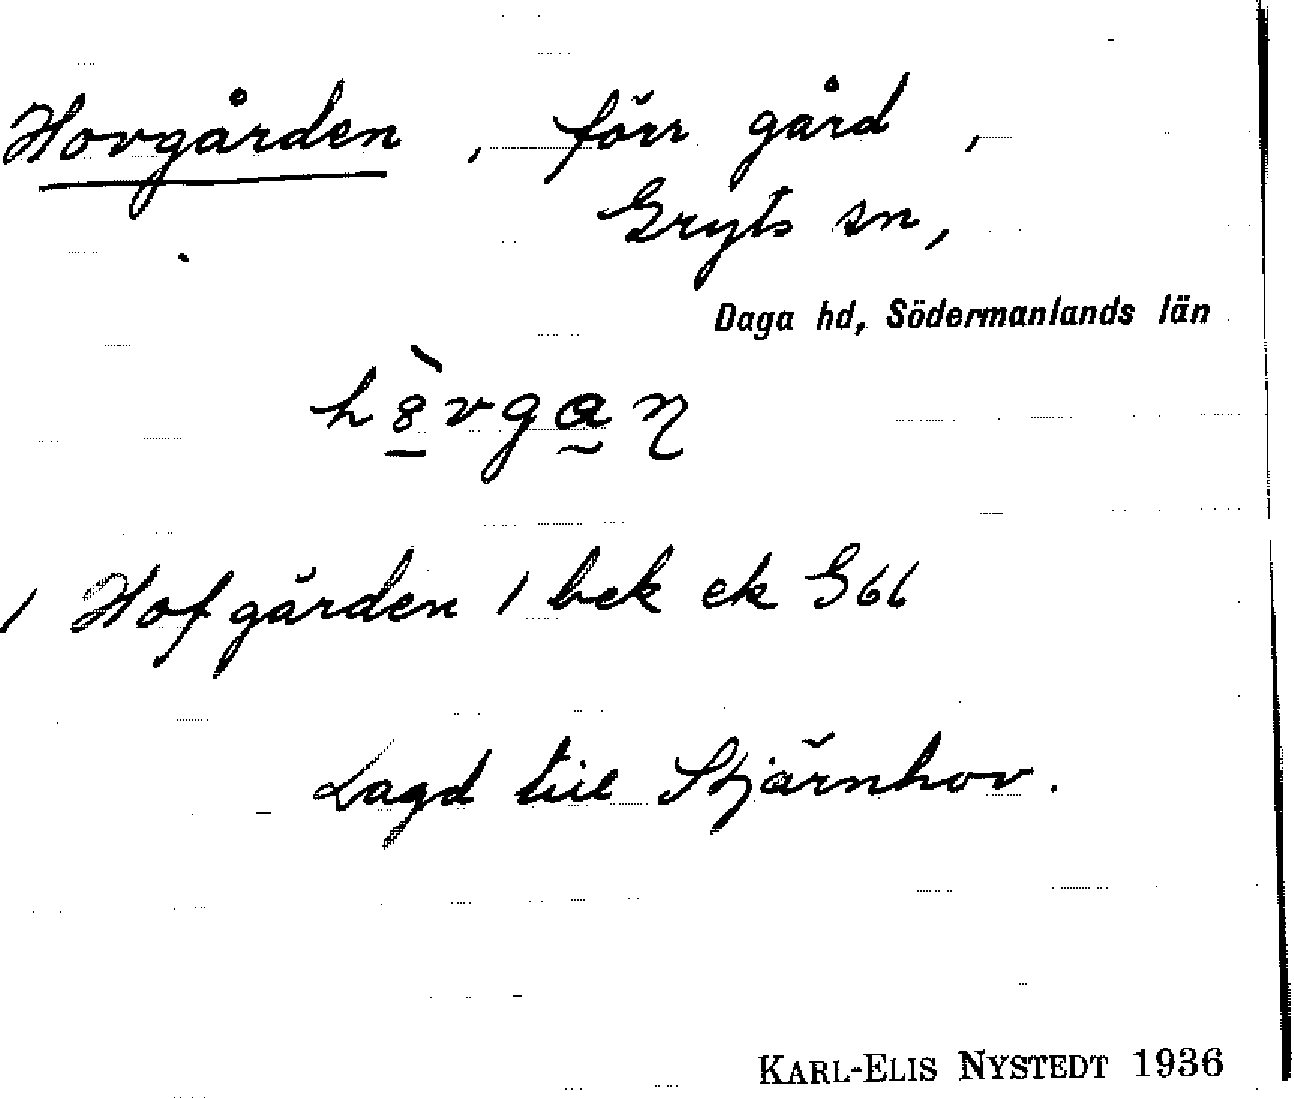 Hovgården, förr gård,
Gryts sn,
Daga hd, Södermanlands län
h8̠̀vga̰ɳ
/ Hofgården / bek ek G 66
Lagd till Stjärnhov.
KARL-ELIS NYSTEDT 1936